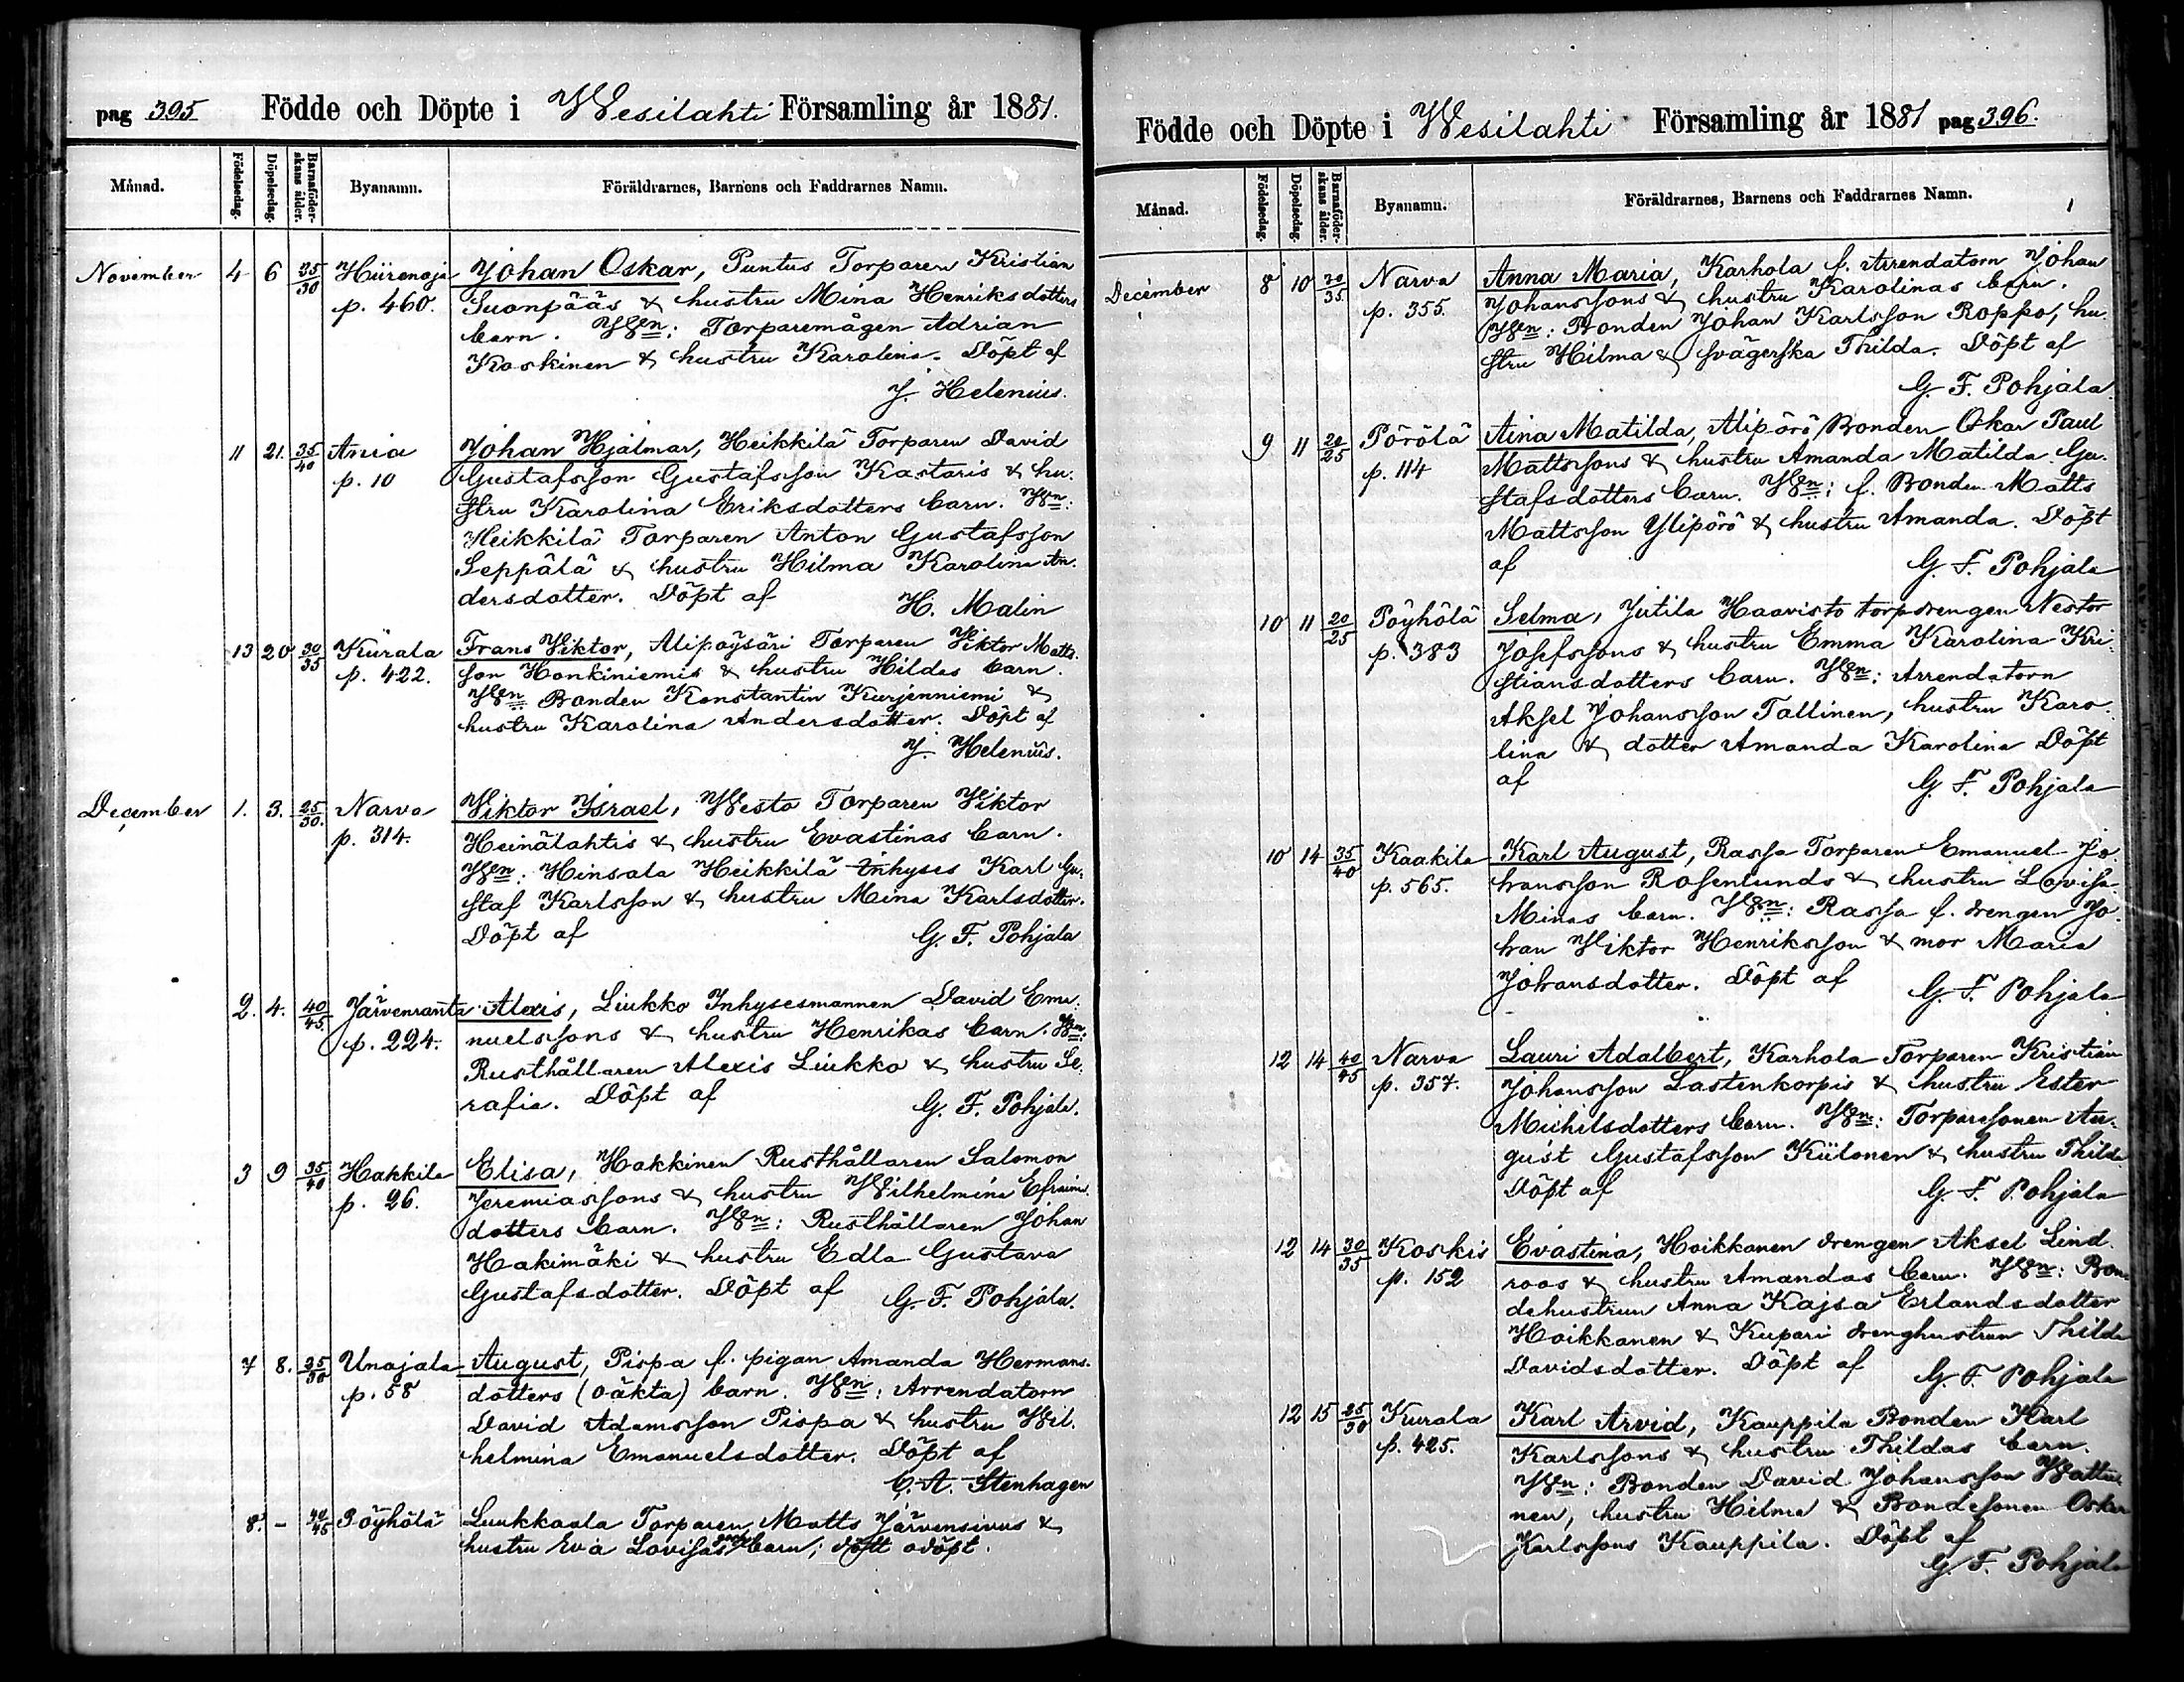 pag 395 Födde och Döpte i Wesilahti Församling år 1881.
Månad. Födelsedag. Döpelsedag. Barnaföderskans ålder. Byanamn. Föräldrarnes, Barnens och Faddrarnes Namn.
November 4 6 25/30 Hiirenoja Johan Oskar, Puntus Torparen Kristian
p. 460. Suonpääs & hustru Mina Henriksdotters
barn. Wn: Torparemågen Adrian
Koskinen & hustru Karolina. Döpt af
J. Helenius.
11 21. 35/40 Ania Johan Hjalmar, Heikkilä Torparen David
p. 10 Gustafsson Gustafsson Kastaris & hu-
stru Karolina Eriksdotters barn. Wn:
Heikkilä Torparen Anton Gustafsson
Seppälä & hustru Hilma Karolina An-
dersdotter. Döpt af H. Malin
13 20 30/35 Kürala Frans Viktor, Alipöysäri Torparen Viktor Matts-
p. 422. son Honkiniemis & hustru Hildas barn.
Wn: Bonden Konstantin Kurjenniemi &
hustru Karolina Andersdotter. Döpt af
J. Helenius.
December 1. 3. 25/30. Narva Viktor Israel, Westo Torparen Viktor
p. 314. Heinälahtis & hustru Evastinas barn.
Wn: Hinsala Heikkilä Inhyses Karl Gu-
staf Karlsson & hustru Mina Karlsdotter.
Döpt af G. F. Pohjala
2. 4. 40/45. Järvenranta Alexis, Liukko Inhysesmannen David Ema-
p. 224. nuelssons & hustru Henrikas barn. Wn:
Rusthållaren Alexis Liukko & hustru Se-
rafia. Döpt af G. F. Pohjala.
3 9 35/40 Hakkila Elisa, Hakkinen Rusthållaren Salomon
p. 26. Jeremiassons & hustru Wilhelmina Efraims-
dotters barn. Wn: Rusthållaren Johan
Hakimäki & hustru Edla Gustava
Gustafsdotter. Döpt af G. F. Pohjala.
7 8. 25/30 Unajala August, Pispa f. pigan Amanda Hermans-
p. 58 dotters (oäkta) barn. Wn: Arrendatorn
David Adamsson Pispa & hustru Wil-
helmina Emanuelsdotter. Döpt af
C. A. Stenhagen
8. - 40/45 Pöyhölä Luukkaala Torparen Matts Järvensivus &
hustru Eva Lovisas barn; dött odöpt.
Födde och Döpte i Wesilahti Församling år 1881 pag 396.
Månad. Födelsedag. Döpelsedag. Barnaföderskans ålder. Byanamn. Föräldrarnes, Barnens och Faddrarnes Namn.
December 8 10 30/35. Narva Anna Maria, Karhola f. Arrendatorn Johan
p. 355. Johanssons & hustru Karolinas barn.
Wn: Bonden Johan Karlsson Roppo, hu-
stru Hilma & svägerska Thilda. Döpt af
G. F. Pohjala
9 11 20/25 Pörölä Aina Matilda, Alipörö Bonden Oskar Paul
p. 114 Mattssons & hustru Amanda Matilda Gu-
stafsdotters barn. Wn: f. Bonden Matts
Mattsson Ylipörö & hustru Amanda. Döpt
af G. F. Pohjala
10 11 20/25 Pöyhölä Selma, Jutila Haavisto torpdrengen Nestor
p. 383 Josefssons & hustru Emma Karolina Kri-
stiansdotters barn. Wn: Arrendatorn
Aksel Johansson Tallinen, hustru Karo-
lina & dotter Amanda Karolina Döpt
af G. F. Pohjala
10 14 35/40 Kaakila Karl August, Rassa Torparen Emanuel Jo-
p. 565. hansson Rosenlunds & hustru Lovisa
Minas barn. Wn: Rassa f. drengen Jo-
han Viktor Henriksson & mor Maria
Johansdotter. Döpt af G. F. Pohjala
12 14 40/45 Narva Lauri Adalbert, Karhola Torparen Kristian
p. 357. Johansson Lastenkorpis & hustru Ester
Michilsdotters barn. Wn: Torparesonen Au-
gust Gustafsson Kiilonen & hustru Thilda
Döpt af G. F. Pohjala
12 14 30/35 Koskis Evastina, Hoikkanen drengen Aksel Lind-
p. 152 roos & hustru Amandas barn. Wn: Bon-
dehustrun Anna Kajsa Erlandsdotter
Hoikkanen & Kupari drenghustrun Thilda
Davidsdotter. Döpt af G. F. Pohjala
12 15 25/30 Kurala Karl Arvid, Kauppila Bonden Karl
p. 425. Karlssons & hustru Thildas barn.
Wn: Bonden David Johansson Wattu-
nen, hustru Hilma & Bondesonen Oskar
Karlssons Kauppila. Döpt af
G. F. Pohjala